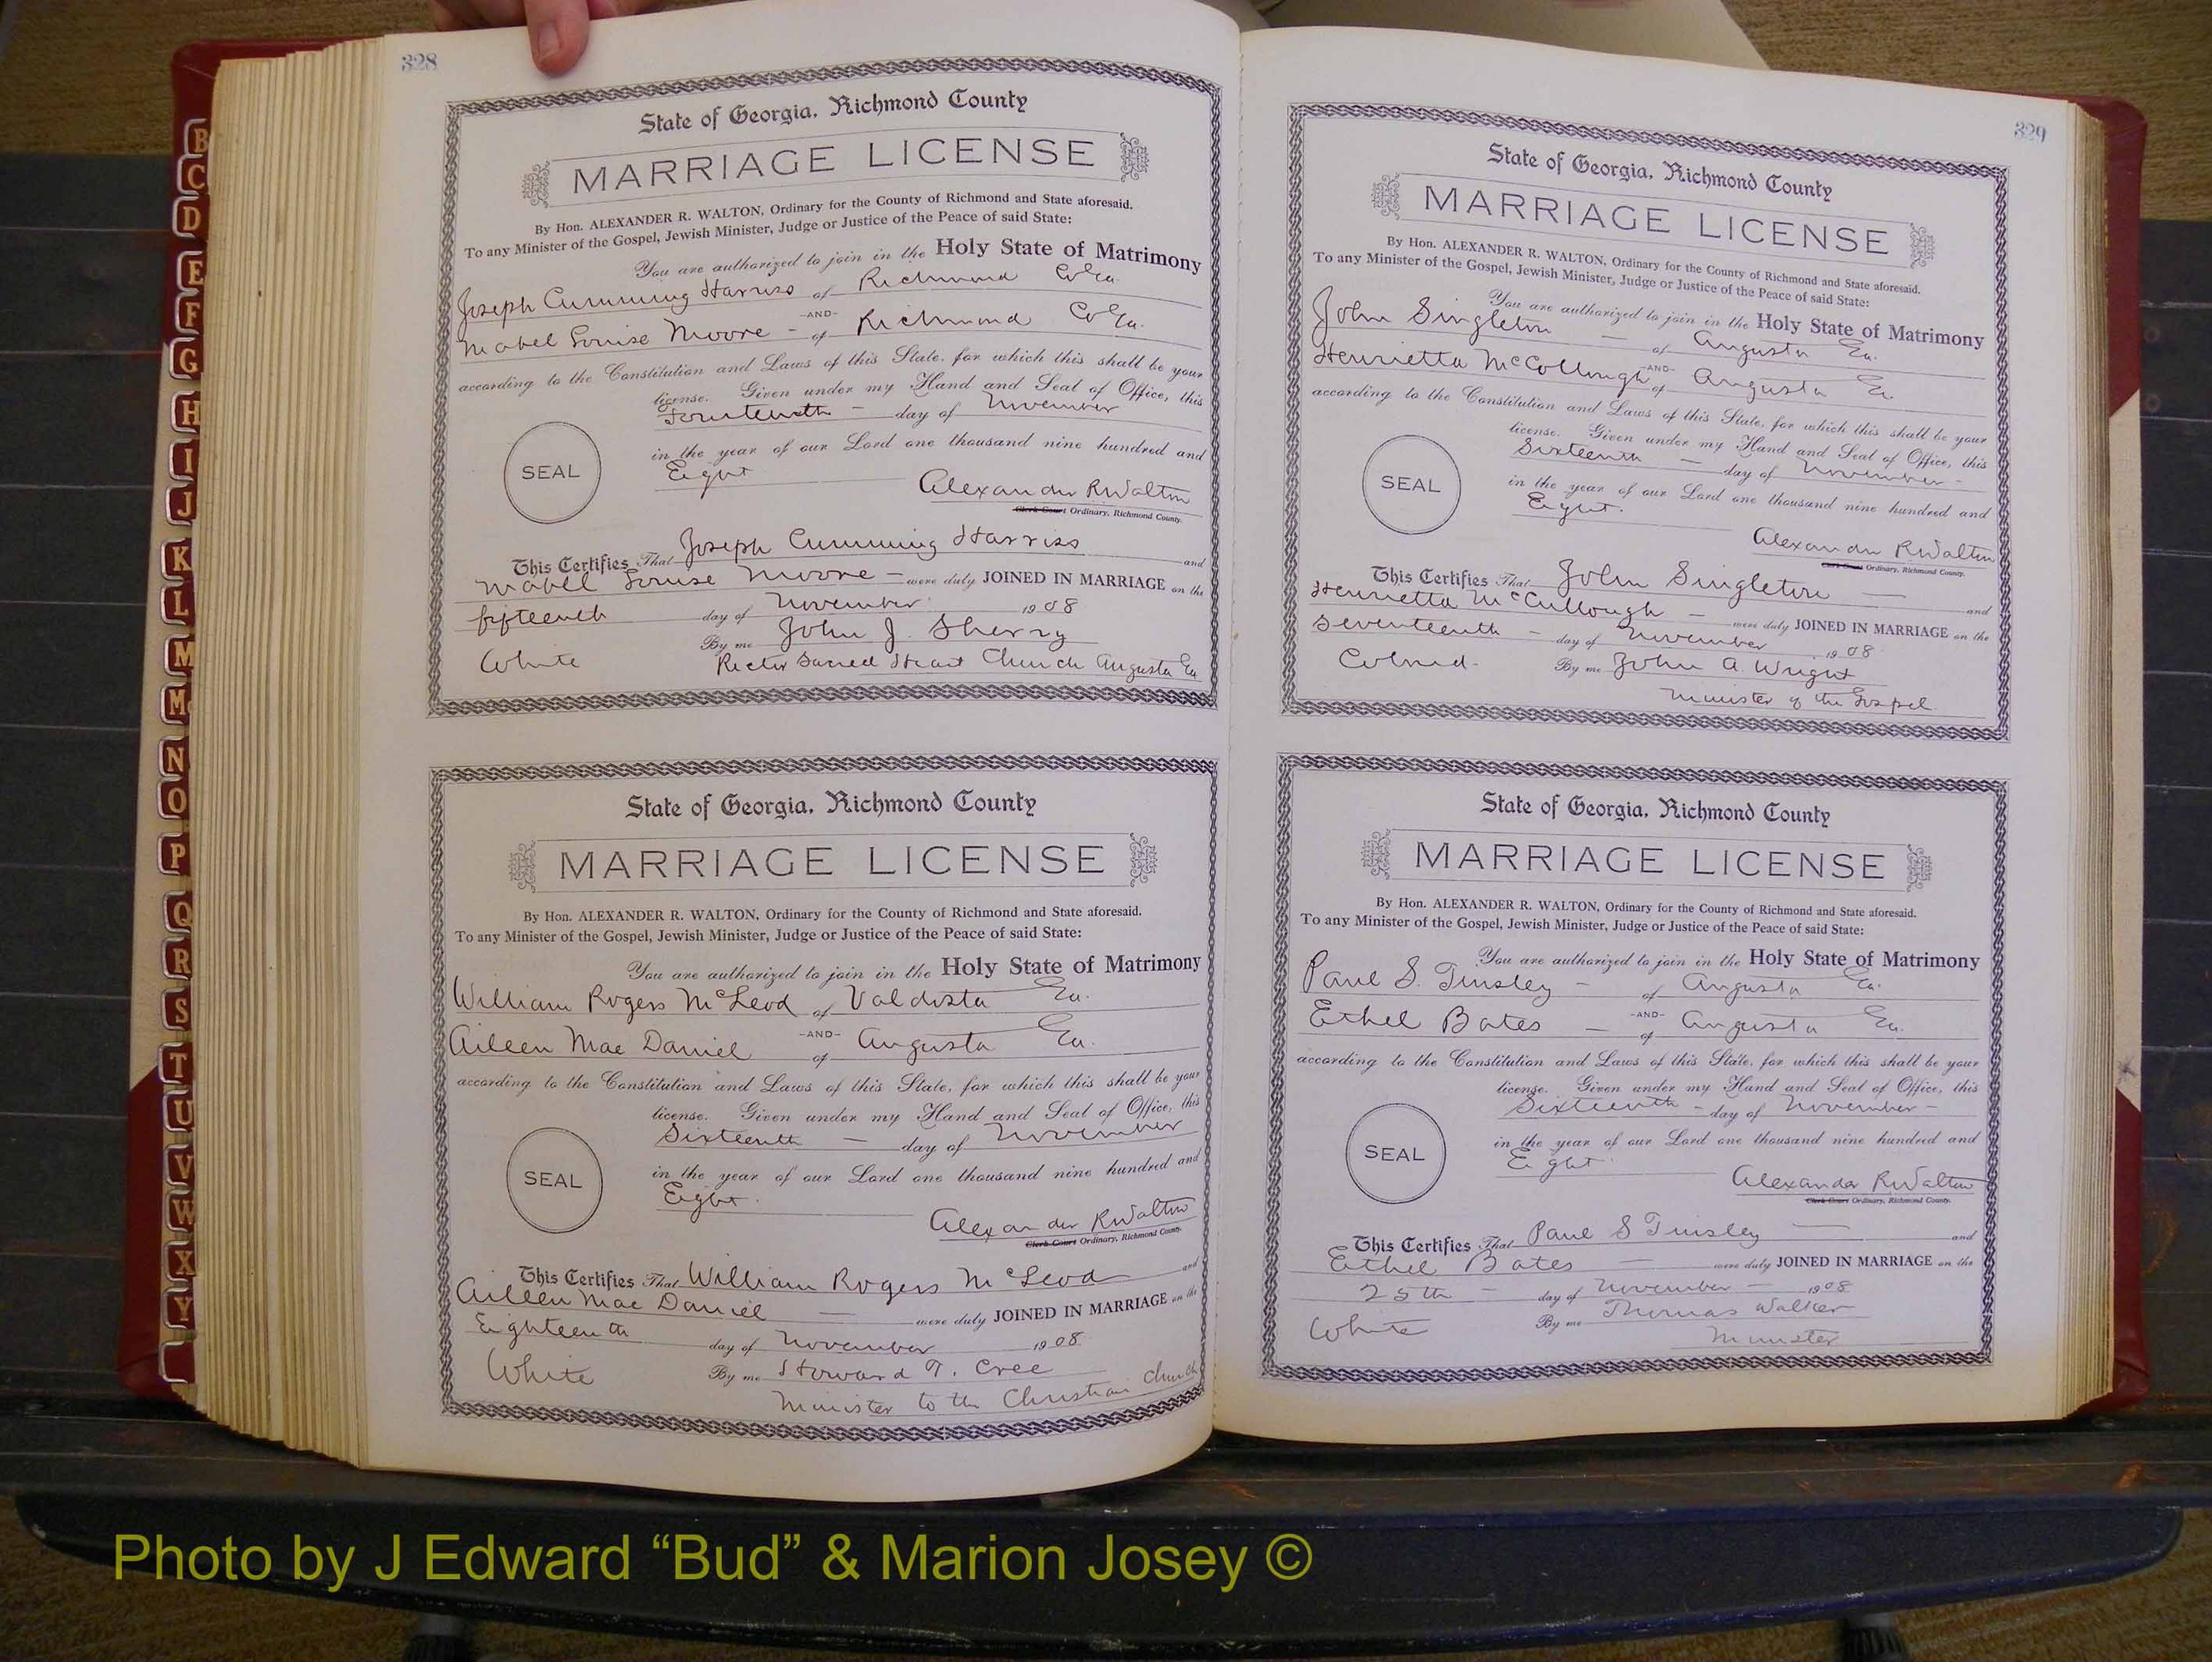 328
State of Georgia, Richmond County
MARRIAGE LICENSE
By Hon. ALEXANDER R. WALTON, Ordinary for the County of Richmond and State aforesaid.
To any Minister of the Gospel, Jewish Minister, Judge or Justice of the Peace of said State:
You are authorized to join in the Holy State of Matrimony
Joseph Cumming Harriss of Richmond Co Ga.
-AND-
Mabel Louise Moore - of Richmond Co Ga.
according to the Constitution and Laws of this State, for which this shall be your
license. Given under my Hand and Seal of Office, this
Fourteenth - day of November
in the year of our Lord one thousand nine hundred and
Eight
SEAL
Alexander R Walton
Clerk Court Ordinary, Richmond County.
This Certifies That Joseph Cumming Harriss and
Mabel Louise Moore - were duly JOINED IN MARRIAGE on the
fifteenth day of November 1908
By me John J. Sherry
White Rector Sacred Heart Church Augusta Ga
State of Georgia, Richmond County
MARRIAGE LICENSE
By Hon. ALEXANDER R. WALTON, Ordinary for the County of Richmond and State aforesaid.
To any Minister of the Gospel, Jewish Minister, Judge or Justice of the Peace of said State:
You are authorized to join in the Holy State of Matrimony
William Rogers McLeod of Valdosta Ga.
-AND-
Aileen Mac Daniel of Augusta Ga.
according to the Constitution and Laws of this State, for which this shall be your
license. Given under my Hand and Seal of Office, this
Sixteenth - day of November
in the year of our Lord one thousand nine hundred and
Eight.
SEAL
Alexander R Walton
Clerk Court Ordinary, Richmond County.
This Certifies That William Rogers McLeod and
Aileen Mac Daniel - were duly JOINED IN MARRIAGE on the
Eighteenth day of November 1908
White By me Howard T. Cree
Minister to the Christian Church
329
State of Georgia, Richmond County
MARRIAGE LICENSE
By Hon. ALEXANDER R. WALTON, Ordinary for the County of Richmond and State aforesaid.
To any Minister of the Gospel, Jewish Minister, Judge or Justice of the Peace of said State:
You are authorized to join in the Holy State of Matrimony
John Singleton - of Augusta Ga.
-AND-
Henrietta McCollough of Augusta Ga
according to the Constitution and Laws of this State, for which this shall be your
license. Given under my Hand and Seal of Office, this
Sixteenth - day of November -
in the year of our Lord one thousand nine hundred and
Eight.
SEAL
Alexander R Walton
Clerk Court Ordinary, Richmond County.
This Certifies That John Singleton - and
Henrietta McCullough - were duly JOINED IN MARRIAGE on the
Seventeenth - day of November 1908
Colored - By me John A. Wright
Minister of the Gospel
State of Georgia, Richmond County
MARRIAGE LICENSE
By Hon. ALEXANDER R. WALTON, Ordinary for the County of Richmond and State aforesaid.
To any Minister of the Gospel, Jewish Minister, Judge or Justice of the Peace of said State:
You are authorized to join in the Holy State of Matrimony
Paul S. Tinsley - of Augusta Ga.
-AND-
Ethel Bates - of Augusta Ga.
according to the Constitution and Laws of this State, for which this shall be your
license. Given under my Hand and Seal of Office, this
Sixteenth - day of November -
in the year of our Lord one thousand nine hundred and
Eight.
SEAL
Alexander R Walton
Clerk Court Ordinary, Richmond County.
This Certifies That Paul S Tinsley - and
Ethel Bates - were duly JOINED IN MARRIAGE on the
25th - day of November - 1908
White By me Thomas Walker
Minister
B
C
D
E
F
G
H
I
J
K
L
M
Mc
N
O
P
Q
R
S
T
U
V
W
X
Y
Photo by J Edward “Bud” & Marion Josey ©